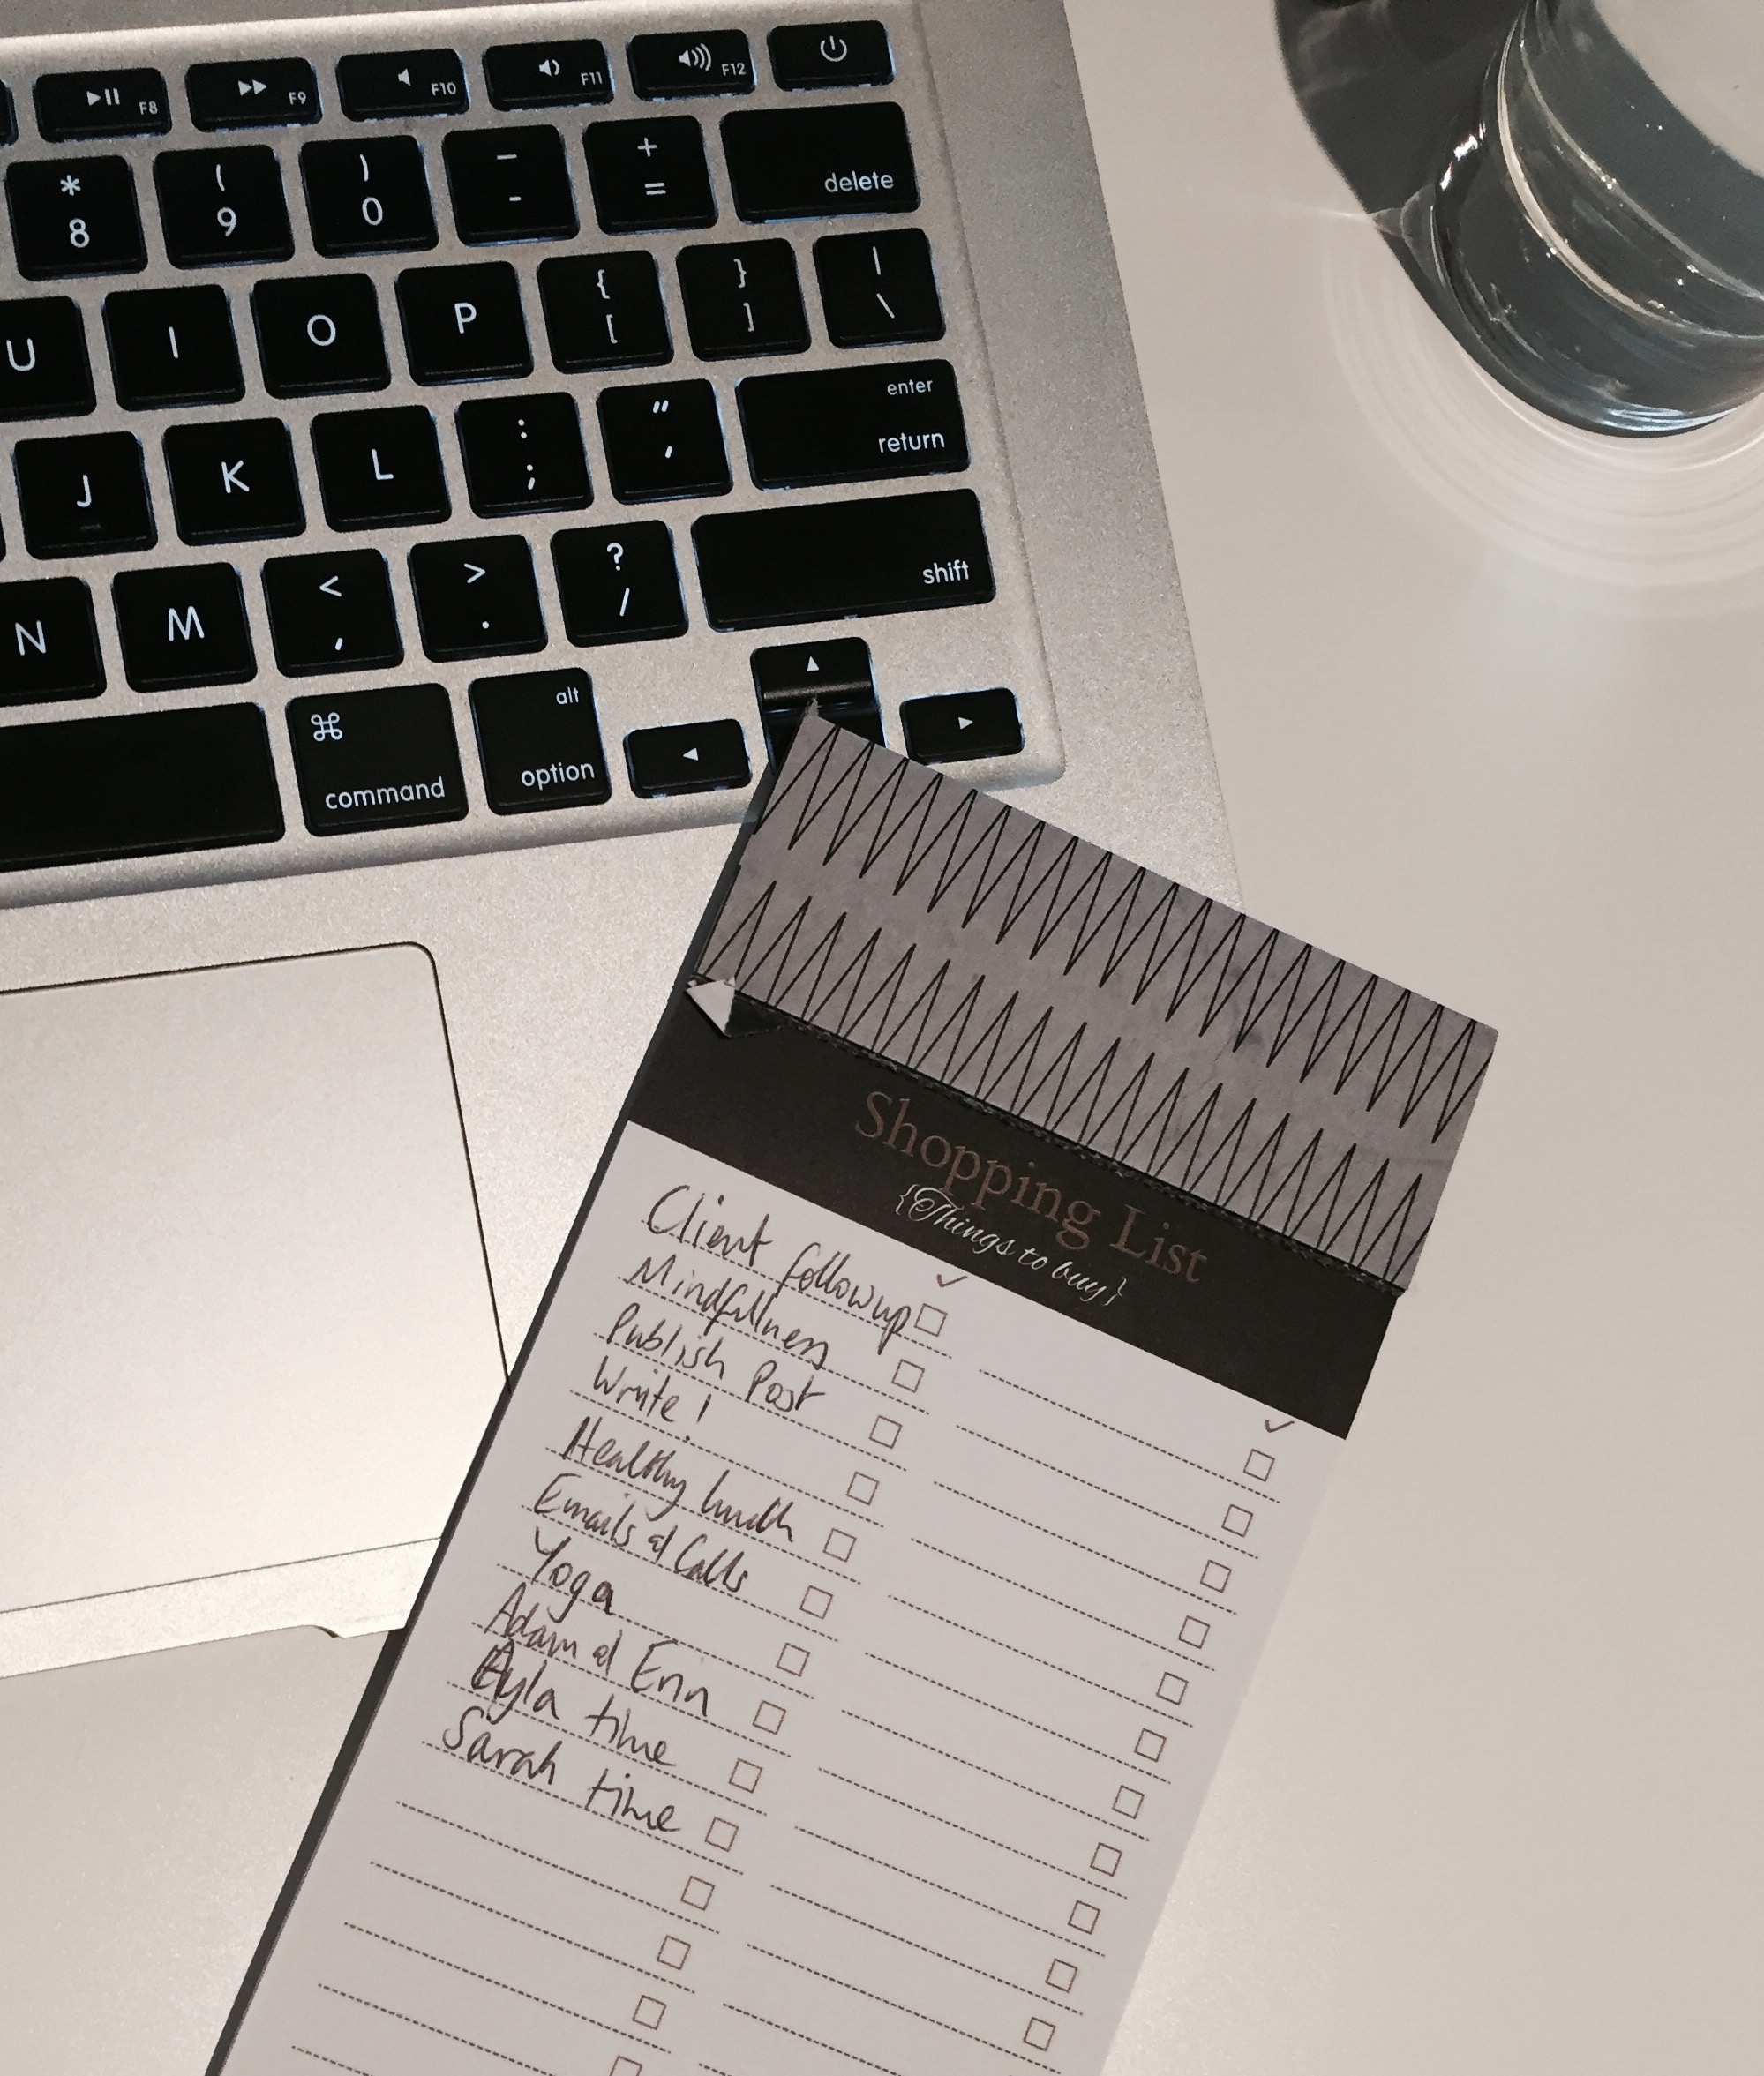 F8 F9 F10 F11 F12
* ( ) — +
8 9 0 - = delete
U I O P { [ } ] | \
enter
J K L : ; " ' return
N M < , > . ? / shift
⌘ alt
command option
Shopping List
{Things to buy}
Client followup
Mindfullness
Publish Post
Write!
Healthy lunch
Emails & Calls
Yoga
Adam & Erin
Ayla time
Sarah time